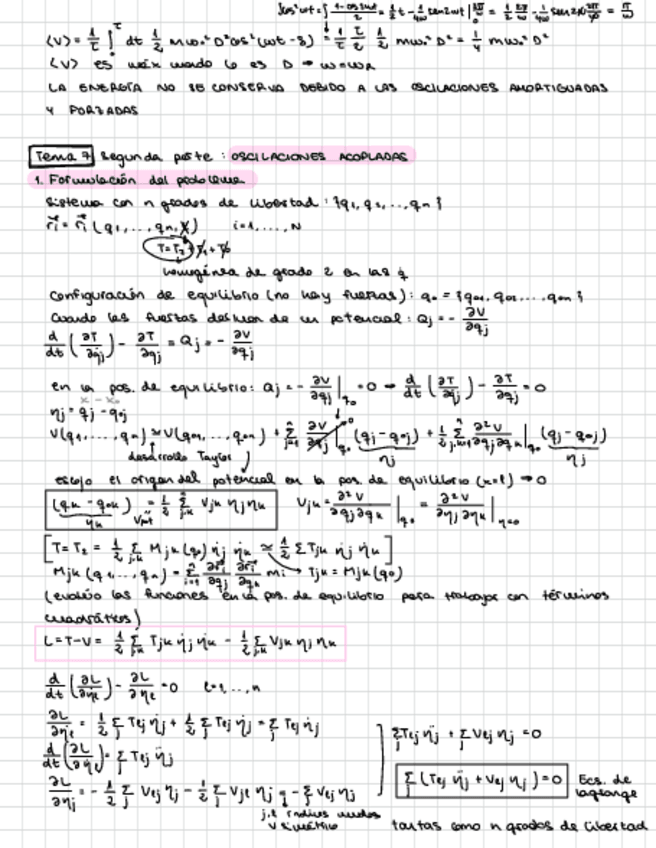 ∫cos²ωt = ∫ (1-cos2ωt)/2 = 1/2 t - 1/4ω sen2ωt |₀ = 1/2 - 1/4ω = π/ω
⟨V⟩ = 1/τ ∫₀^τ dt 1/2 mω₀² D² cos²(ωt-δ) = 1/τ τ/2 1/2 mω₀² D² = 1/4 mω₀² D²
⟨V⟩ es máx cuando lo es D → ω=ωR
LA ENERGÍA NO SE CONSERVA DEBIDO A LAS OSCILACIONES AMORTIGUADAS
Y FORZADAS
Tema 7 Segunda parte : OSCILACIONES ACOPLADAS
1. Formulación del problema
Sistema con n grados de libertad : {q₁, q₂, ..., qn}
r⃗i = r⃗i (q₁, ..., qn, t) i=1, ..., N
T=T₂+T₁+T₀
homogénea de grado 2 en las q̇
Configuración de equilibrio (no hay fuerzas) : q₀ = {q₀₁, q₀₂, ..., q₀n}
Cuando las fuerzas derivan de un potencial : Qj = - ∂V/∂qj
d/dt (∂T/∂q̇j) - ∂T/∂qj = Qj = - ∂V/∂qj
en la pos. de equilibrio: Qj = - ∂V/∂qj |q₀ = 0 → d/dt (∂T/∂q̇j) - ∂T/∂qj = 0
x - x₀
ηj = qj - q₀j
V(q₁, ..., qn) ≃ V(q₀₁, ..., q₀n) + Σ ∂V/∂qj |q₀ (qj - q₀j) + 1/2 Σ ∂²V/∂qj∂qk |q₀ (qj - q₀j)
desarrollo Taylor ηj ηj
escojo el origen del potencial en la pos. de equilibrio → 0
(qk - q₀k) = 1/2 Σ Vjk ηj ηk Vjk = ∂²V/∂qj∂qk |q₀ = ∂²V/∂ηj∂ηk |η=0
ηk
[T = T₂ = 1/2 Σ Mjk (q₀) η̇j η̇k ≃ 1/2 Σ Tjk η̇j η̇k]
Mjk (q₁, ..., qn) = Σ ∂r⃗i/∂qj ∂r⃗i/∂qk mi Tjk = Mjk (q₀)
(evalúo las funciones en la pos. de equilibrio para trabajar con términos
cuadráticos)
L = T-V = 1/2 Σ Tjk η̇j η̇k - 1/2 Σ Vjk ηj ηk
d/dt (∂L/∂η̇ℓ) - ∂L/∂ηℓ = 0 ℓ=1, ..., n
∂L/∂η̇ℓ = 1/2 Σ Tℓj η̇j + 1/2 Σ Tℓj η̇j = Σ Tℓj η̇j
Σ Tℓj η̈j + Σ Vℓj ηj = 0
d/dt (∂L/∂η̇ℓ) = Σ Tℓj η̈j
Σ (Tℓj η̈j + Vℓj ηj) = 0 Ecs. de
lagrange
∂L/∂ηj = - 1/2 Σ Vℓj ηj - 1/2 Σ Vjℓ ηj = - Σ Vℓj ηj
j,ℓ índices mudos
V simétrico
tantas como n grados de libertad